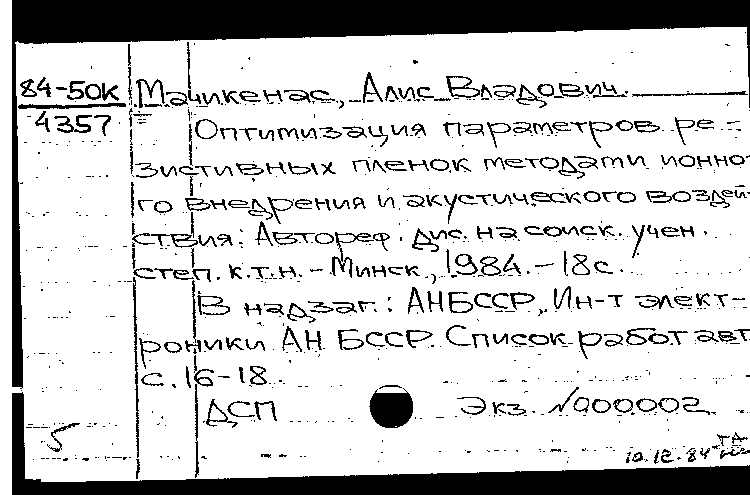 84-50К Мачикенас, Алис Владович.
4357 Оптимизация параметров ре-
зистивных пленок методами ионно-
го внедрения и акустического воздей-
ствия: Автореф. дис. на соиск. учен.
степ. к.т.н. - Минск, 1984. - 18 с.
В надзаг.: АН БССР, Ин-т элект-
роники АН БССР. Список работ авт.
с. 16-18.
ДСП Экз. №000002
5
10.12.84